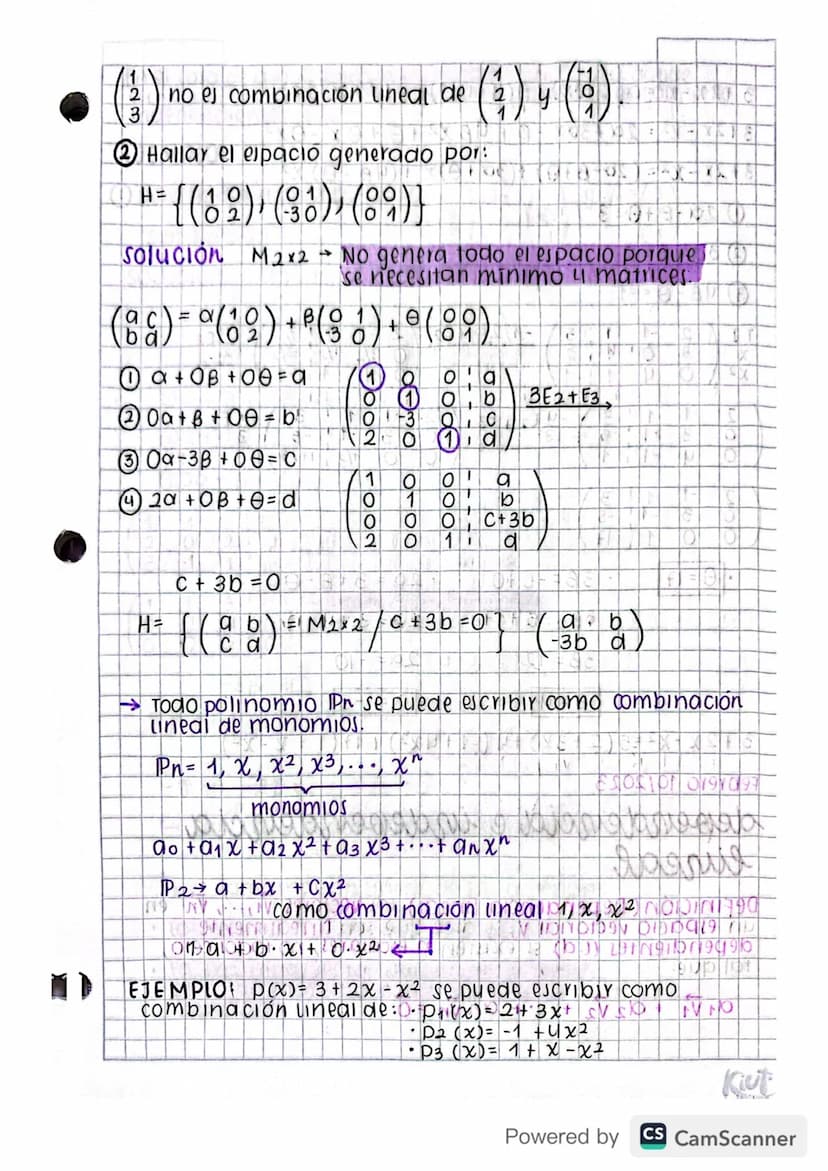 (1 2 3) no es combinación lineal de (1 2 1) y (-1 0 1).
② Hallar el espacio generado por:
H= {(1 0 0 2), (0 1 -3 0), (0 0 0 1)}
solución M2x2 → No genera todo el espacio porque
se necesitan mínimo 4 matrices.
(a c b d) = α(1 0 0 2) + β(0 1 -3 0) + θ(0 0 0 1)
① α + 0β + 0θ = a
② 0α + β + 0θ = b
③ 0α - 3β + 0θ = c
④ 2α + 0β + θ = d
1 0 0 ¦ a
0 1 0 ¦ b
0 -3 0 ¦ c
2 0 1 ¦ d
3E2+E3
1 0 0 ¦ a
0 1 0 ¦ b
0 0 0 ¦ c+3b
2 0 1 ¦ d
c + 3b = 0
H= {(a b c d) = M2x2 / c + 3b = 0} (a b -3b d)
→ Todo polinomio Pn se puede escribir como combinación
lineal de monomios.
Pn= 1, x, x², x³,..., xⁿ
monomios
a0 + a1x + a2x² + a3x³ + ... + anxⁿ
P2 → a + bx + cx²
como combinación lineal 1, x, x²
a + b · x + · x² ←
EJEMPLO: p(x) = 3 + 2x - x² se puede escribir como
combinación lineal de: · p1(x) = 2 + 3x
· p2 (x) = -1 + 4x²
· p3 (x) = 1 + x - x²
Kiut
Powered by CS CamScanner